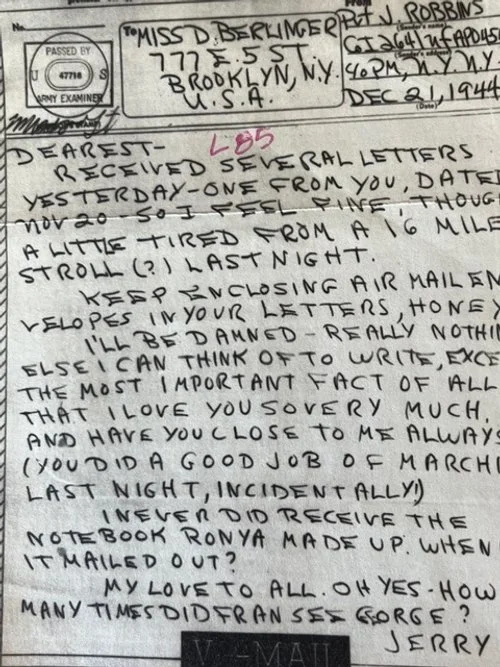 No.
To MISS D. BERLINGER
777 E. 5 ST.
BROOKLYN, N.Y.
U.S.A.
From
Pvt J. ROBBINS
(Sender's name)
(Sender's address)
c/o PM, N.Y. N.Y.
DEC 21, 1944
(Date)
PASSED BY
U S
47716
ARMY EXAMINER
L85
DEAREST-
RECEIVED SEVERAL LETTERS
YESTERDAY-ONE FROM YOU, DATE
NOV 20 - SO I FEEL FINE, THOUG
A LITTLE TIRED FROM A 16 MILE
STROLL (?) LAST NIGHT.
KEEP ENCLOSING AIR MAIL EN
VELOPES IN YOUR LETTERS, HONEY
I'LL BE DAMNED - REALLY NOTHIN
ELSE I CAN THINK OF TO WRITE, EXCE
THE MOST IMPORTANT FACT OF ALL
THAT I LOVE YOU SO VERY MUCH,
AND HAVE YOU CLOSE TO ME ALWAYS
(YOU DID A GOOD JOB OF MARCHI
LAST NIGHT, INCIDENTALLY!)
I NEVER DID RECEIVE THE
NOTEBOOK RONYA MADE UP. WHEN
IT MAILED OUT?
MY LOVE TO ALL. OH YES - HOW
MANY TIMES DID FRAN SEE GEORGE?
JERRY
V - MAIL